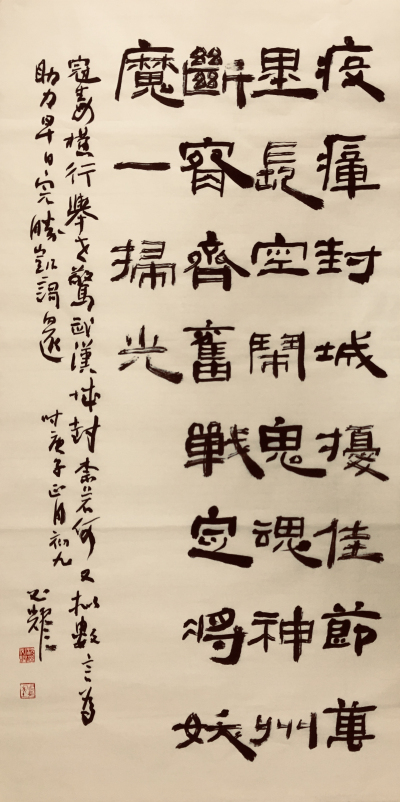 疫瘴封城擾佳節萬
里長空鬧鬼魂神州
斷齊奮戰定將妖
魔一掃光
冠毒橫行舉世驚武漢城封奈若何又擬數言為
助力早日完勝凱謌還
時庚子正月初九